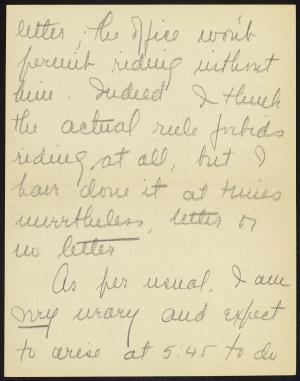 letter; the office won't
permit riding without
him. Indeed I think
the actual rule forbids
riding at all, but I
have done it at times
nevertheless, letter or
no letter.
As per usual, I am
very weary and expect
to arise at 5:45 to do